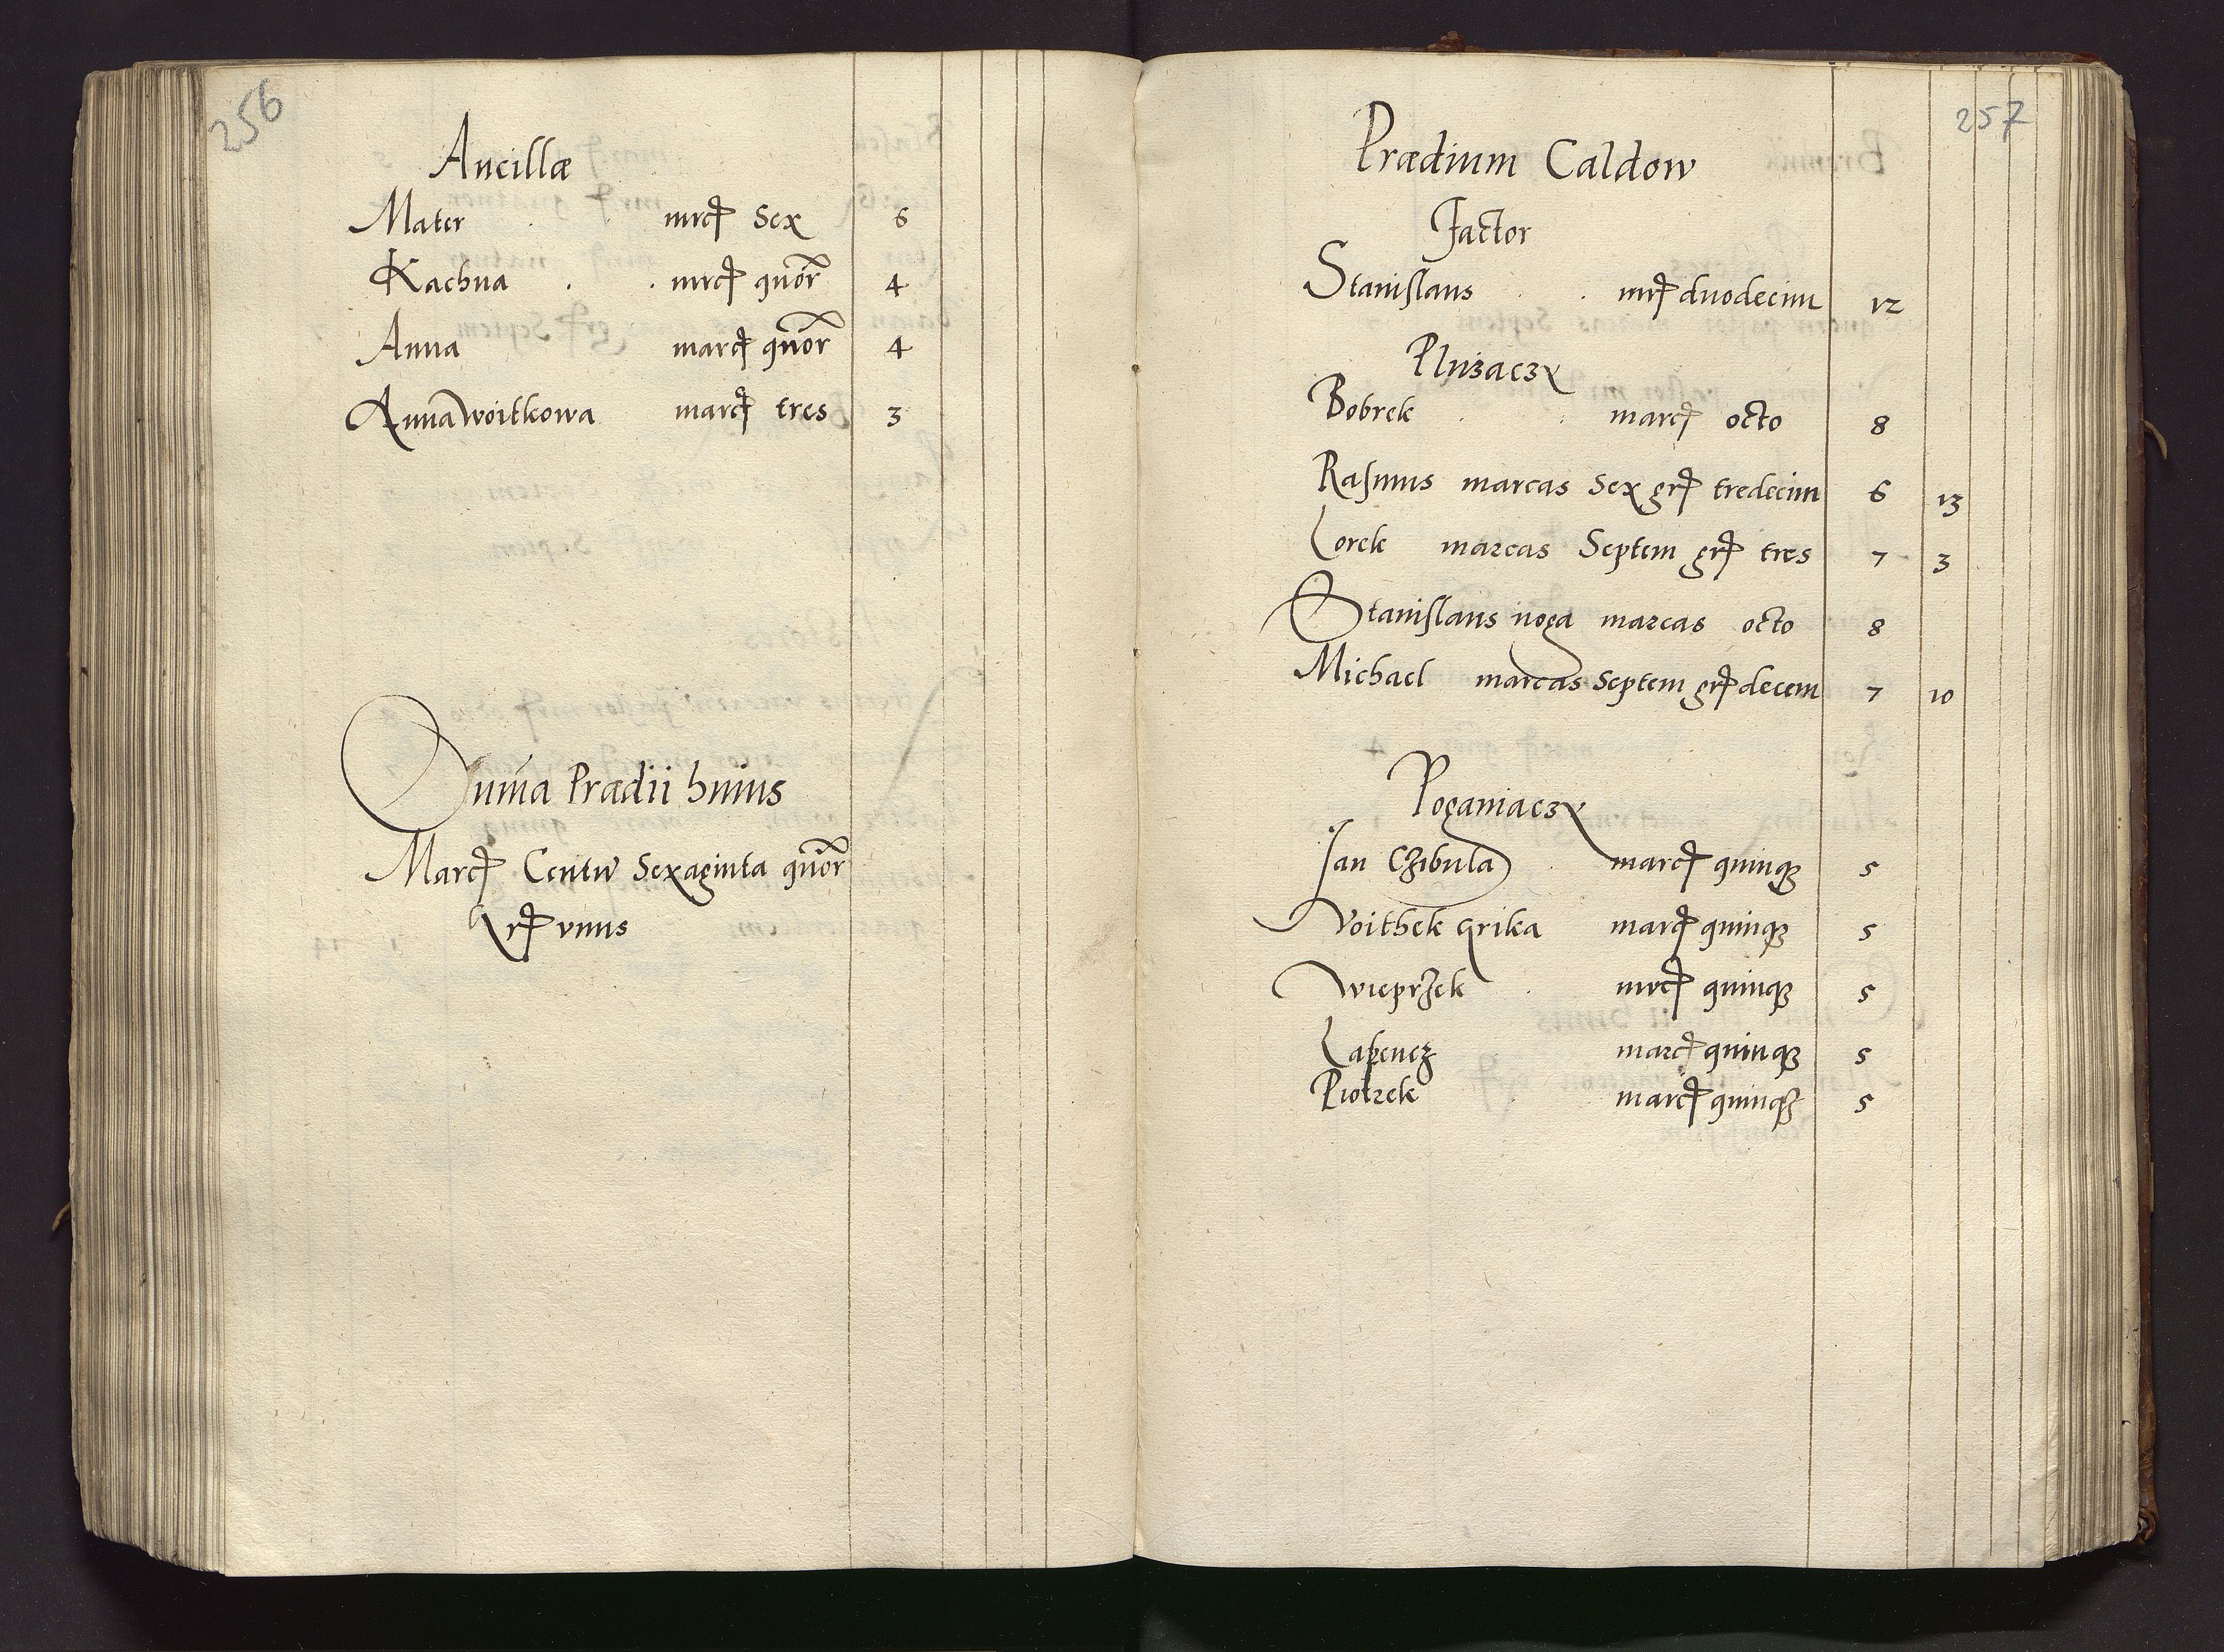 256
Ancillæ
Mater mrcſ Sex 6
Kachna mrcſ quor 4
Anna marcſ quor 4
Anna Woitkowa marcſ tres 3
Suma Prædii huius
Marcſ Centu Sexaginta quor
Grſ vnus
257
Prædium Caldow
Factor
Staniſlaus mrſ duodecim 12
Pluzaczy
Bobrek marcſ octo 8
Raſmus marcas Sex grſ tredecim 6 13
Lorek marcas Septem grſ tres 7 3
Staniſlaus noga marcas octo 8
Michael marcas Septem grſ decem 7 10
Poganiaczy
Jan Czibula marcſ quinqꝫ 5
Voithek Grika marcſ quinqꝫ 5
Wieprzek mrcſ quinqꝫ 5
marcſ quinqꝫ 5
Piotrek marcſ quinqꝫ 5